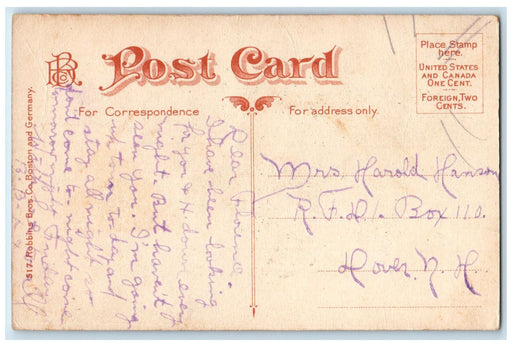 RBCo
Post Card
Place Stamp
here.
UNITED STATES
AND CANADA
ONE CENT.
FOREIGN, TWO
CENTS.
For Correspondence
For address only.
517. Robbins Bros. Co. Boston and Germany.
Dear Florence.
I have been looking
for you & H down every
night. But haven't
seen you. I'm going
to day and
stay all night so
don't come to-night come
Mrs. Harold Hanson
R. F. D. 1. Box 110.
Dover. N. H